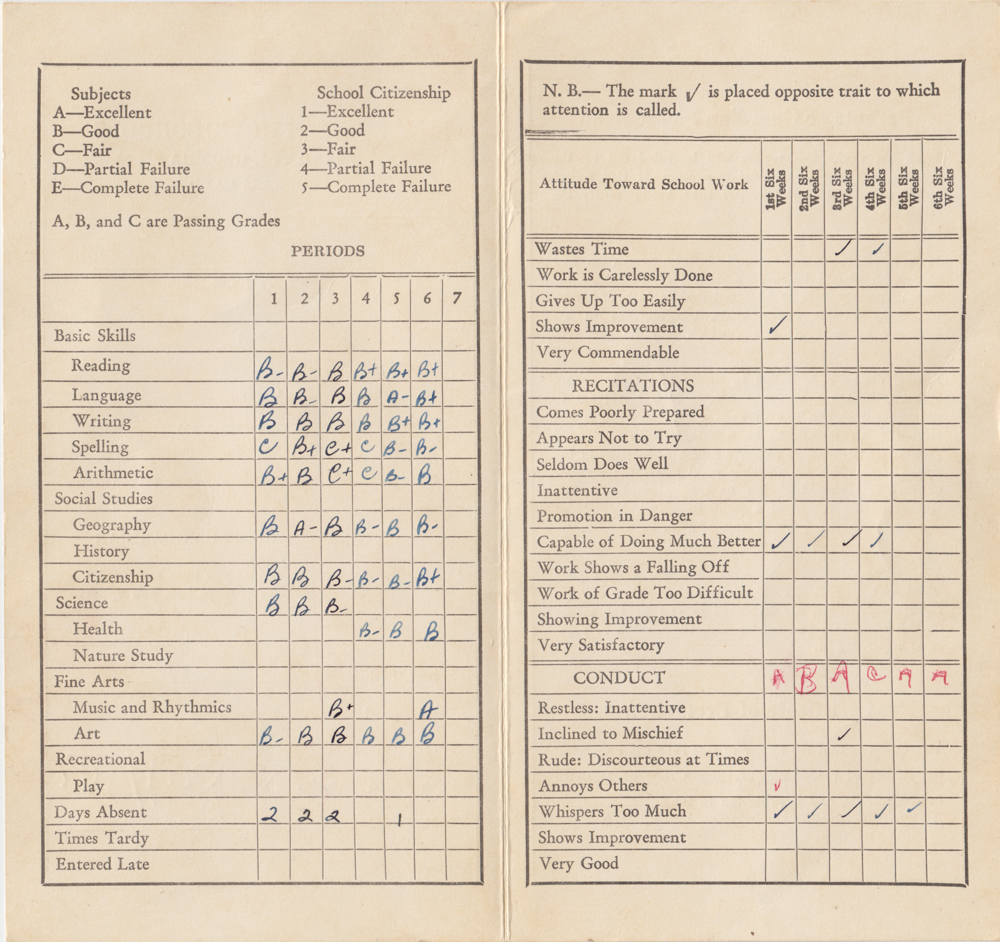 Subjects School Citizenship
A—Excellent 1—Excellent
B—Good 2—Good
C—Fair 3—Fair
D—Partial Failure 4—Partial Failure
E—Complete Failure 5—Complete Failure
A, B, and C are Passing Grades
PERIODS
1 2 3 4 5 6 7
Basic Skills
Reading B- B- B B+ B+ B+
Language B B- B B A- B+
Writing B B B B B+ B+
Spelling C B+ C+ C B- B-
Arithmetic B+ B C+ C B- B
Social Studies
Geography B A- B B- B B-
History
Citizenship B B B- B- B- B+
Science B B B-
Health B- B B
Nature Study
Fine Arts
Music and Rhythmics B+ A
Art B- B B B B B
Recreational
Play
Days Absent 2 2 2 1
Times Tardy
Entered Late
N. B.— The mark ✓ is placed opposite trait to which
attention is called.
Attitude Toward School Work 1st Six Weeks 2nd Six Weeks 3rd Six Weeks 4th Six Weeks 5th Six Weeks 6th Six Weeks
Wastes Time ✓ ✓
Work is Carelessly Done
Gives Up Too Easily
Shows Improvement ✓
Very Commendable
RECITATIONS
Comes Poorly Prepared
Appears Not to Try
Seldom Does Well
Inattentive
Promotion in Danger
Capable of Doing Much Better ✓ ✓ ✓ ✓
Work Shows a Falling Off
Work of Grade Too Difficult
Showing Improvement
Very Satisfactory
CONDUCT A B A C A A
Restless: Inattentive
Inclined to Mischief ✓
Rude: Discourteous at Times
Annoys Others ✓
Whispers Too Much ✓ ✓ ✓ ✓ ✓
Shows Improvement
Very Good